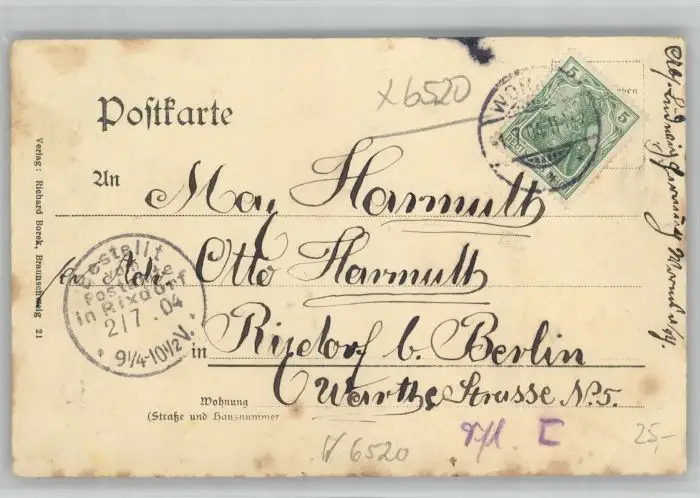 x6520
Postkarte
WOR
5
5
An
Max Harmuth
per Adr. Otto Harmuth
in Rixdorf b. Berlin
Warthe Strasse No 5.
Wohnung
(Straße und Hausnummer
Bestellt
vom
Postamte
in Rixdorf
2/7 . 04
9 1/4-10 1/2 V.
Verlag: Richard Borek, Braunschweig 21
Abs. Ludwig
6520
I
25,-